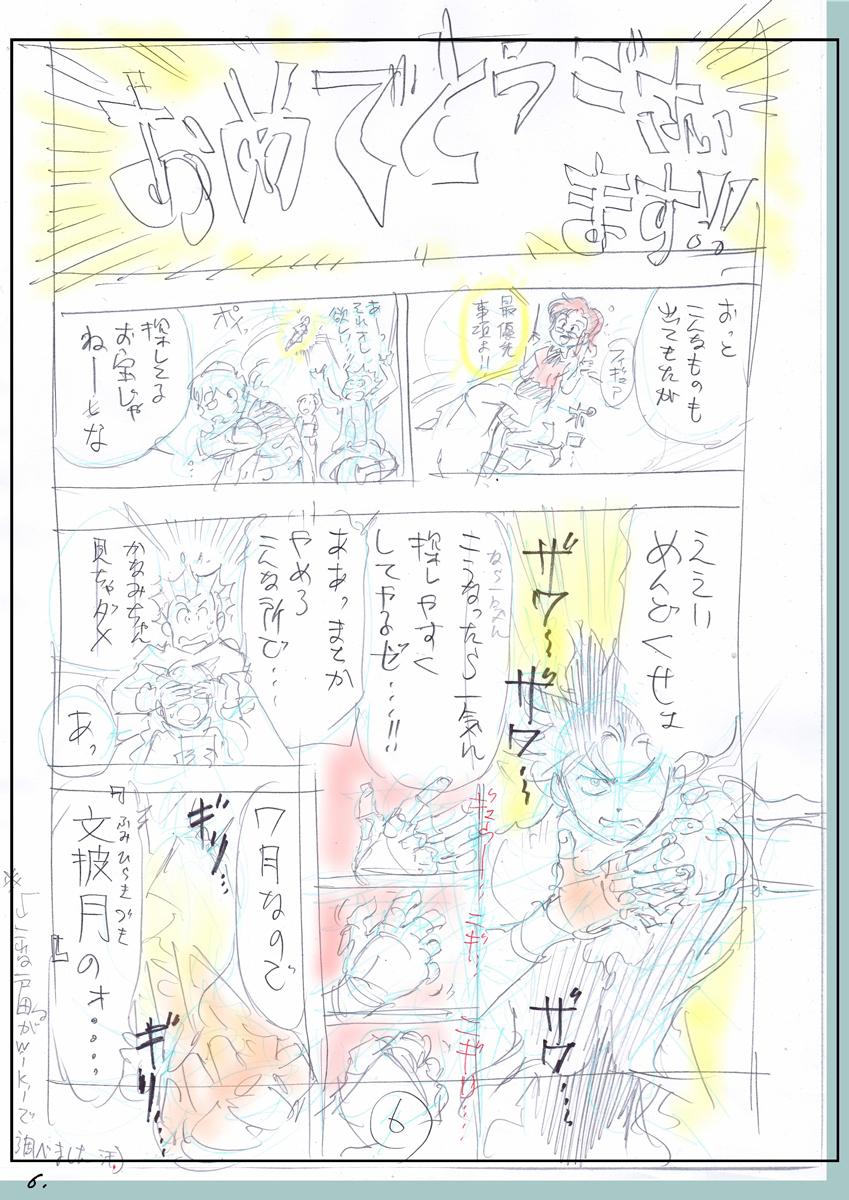 おめでとうござい
ます!!
おっと
こんなものも
出てきたが
フィギュア
最優先
事項よ!!
あーっ
それアタシ
欲しい!
ポイッ
探してる
お宝じゃ
ねーとな
ええい
めんどくせェ
ザワ〜…
ザワ〜…
ザワ…
こうなったら一気に
探しやすく
してやるゼ…!!
ああっまさか
やめろ
こんな所で…
かなみちゃん
見ちゃダメ
あっ
ゴゴ…
7月なので
ふみひらきづき
文披月のォ……
ギリ…
ギリ…
6
調べました
6.